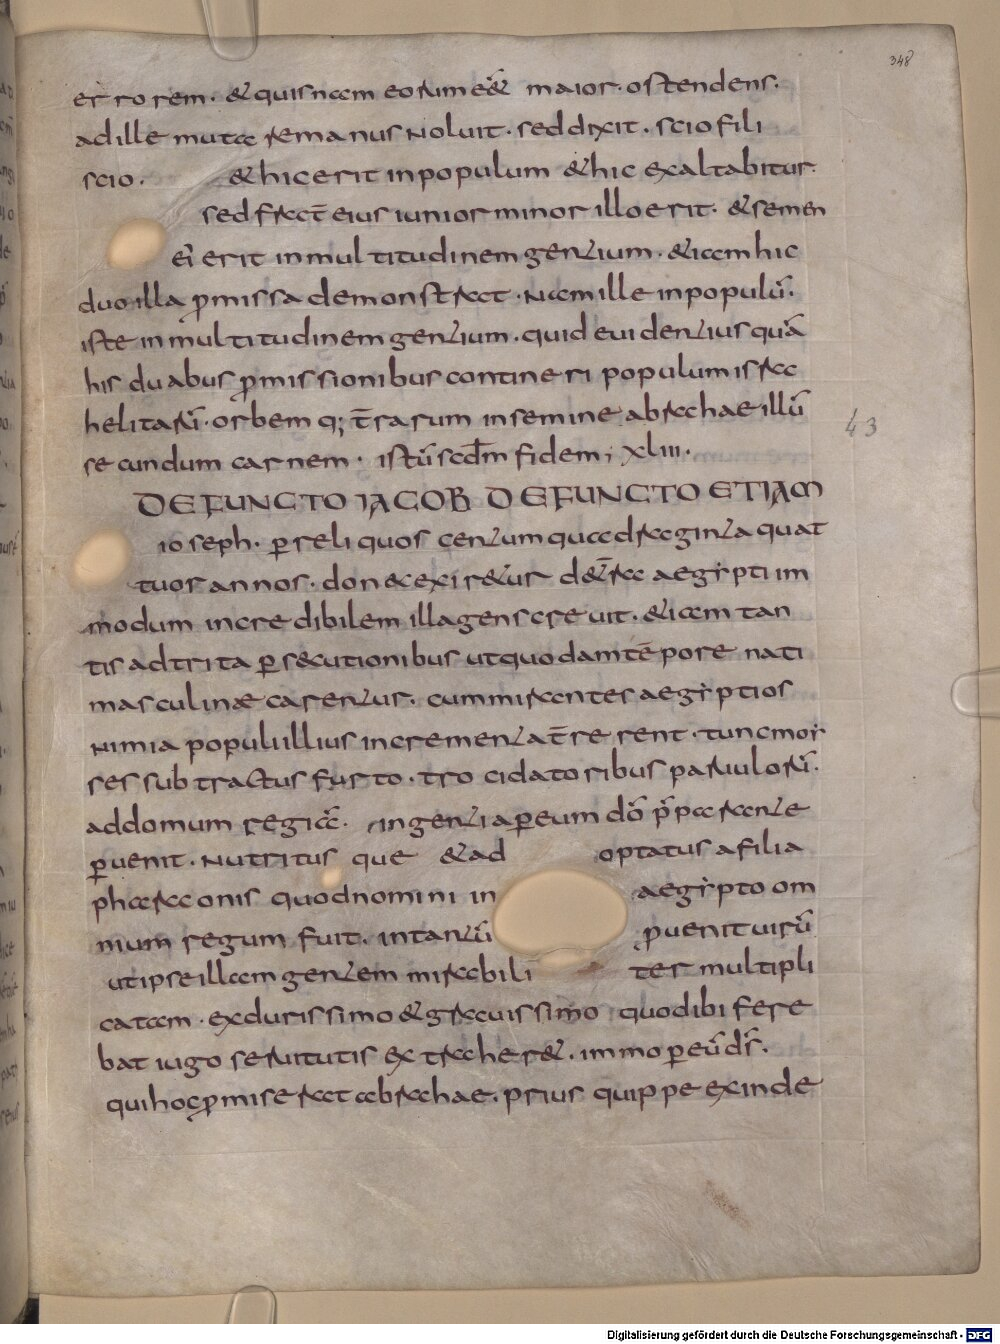 348
errorem. & quisnam eorum eēt maior. ostendens.
ad ille mutare manus noluit. sed dixit. scio fili
scio. & hic erit in populum & hic exaltabitur.
sed frat̄ eius iunior minor illo erit. & semen
ei erit in multitudinem gentium. & iam hic
duo illa p̄missa demonstrat. nam ille in populū.
iste in multitudinem gentium. quid evidentius quā
his duabus p̄missionibus contineri populum isra
helitarū. orbem q; t̄rarum in semine abrahae illū
secundum carnem. istū scd̄m fidem; XLIII.
DEFUNCTO IACOB DEFUNCTO ETIAM
43
ioseph. p̱ reliquos centum quadraginta quat
tuor annos. donec exiretur de t̄ra aegypti im
modum incredibilem illa gens crevit. & iam tan
tis adtrita p̱secutionibus ut quodam tēpore nati
masculinae carentur. cum mirantes aegyptios
nimia populi illius incrementa t̄rerent. tunc moy
ses subtractus furto. trocidatoribus parvulorū.
ad domum regiā. ingentia p̱ eum dō p̄parante
p̱venit. nutritus que & ad optatus a filia
pharaonis quod nomini in aegypto om
nium regum fuit. in tantū p̄venit virū
ut ipse illam gentem mirabili ter multipli
catam. ex durissimo & gravissimo quod ibi fere
bat iugo servitutis extraher&. immo p̱ eū ds̄.
qui hoc p̄miserat abrahae. prius quippe exinde
Digitalisierung gefördert durch die Deutsche Forschungsgemeinschaft - DFG